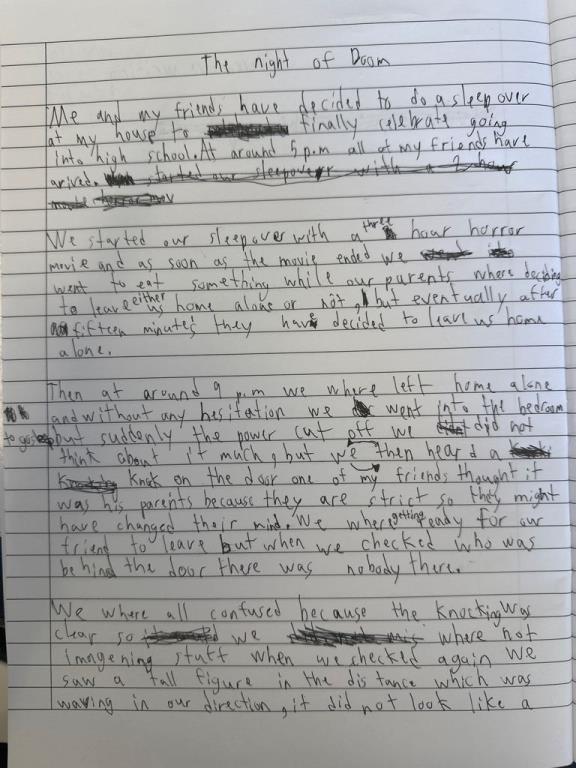 The night of Doom
Me and my friends have decided to do a sleep over
at my house to finally celebrate going
into high school. At around 5 p.m all of my friends have
arived. started our sleepover with a 2 hour
We started our sleepover with a three hour horror
movie and as soon as the movie ended we
went to eat something while our parents where deciding
to leave either us home alone or not, but eventually after
fifteen minute's they have decided to leave us home
alone.
Then at around 9 p.m we where left home alone
and without any hesitation we went into the bedroom
to go sleep but suddenly the power cut off we did not
think about it much, but we then heard a
knock on the door one of my friends thought it
was his parents because they are strict so they might
have changed their mind. We where getting ready for our
friend to leave but when we checked who was
behind the door there was nobody there.
We where all confused because the knocking was
clear so we where not
imagening stuff when we checked again we
saw a tall figure in the distance which was
waving in our direction, it did not look like a